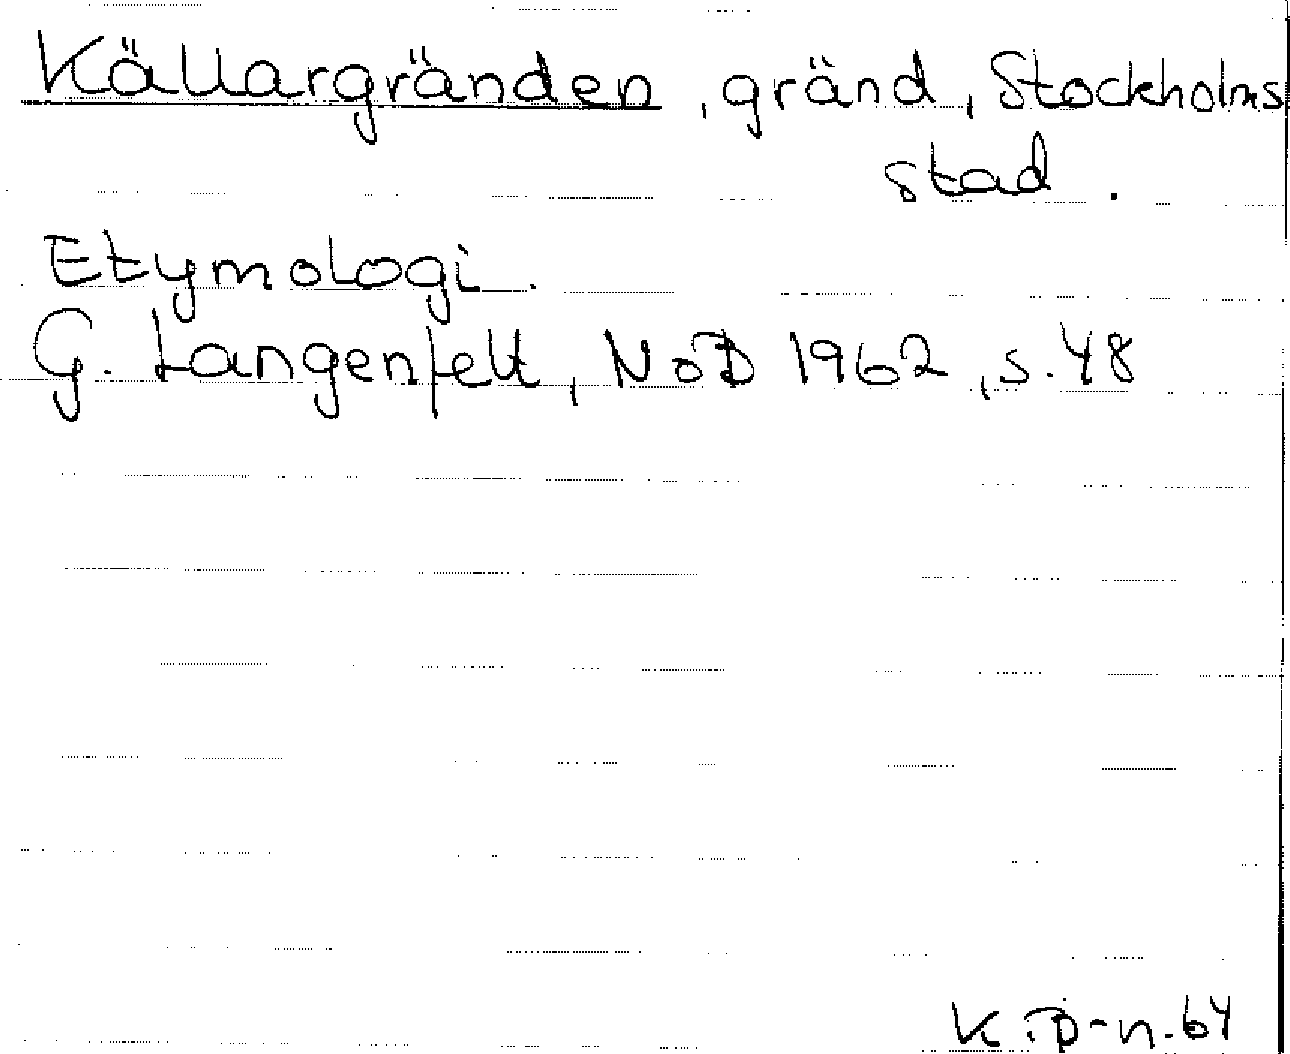 Källargränden, gränd, Stockholms
stad.
Etymologi.
G. Langenfelt, NoB 1962, s. 48
K. B-n. 64